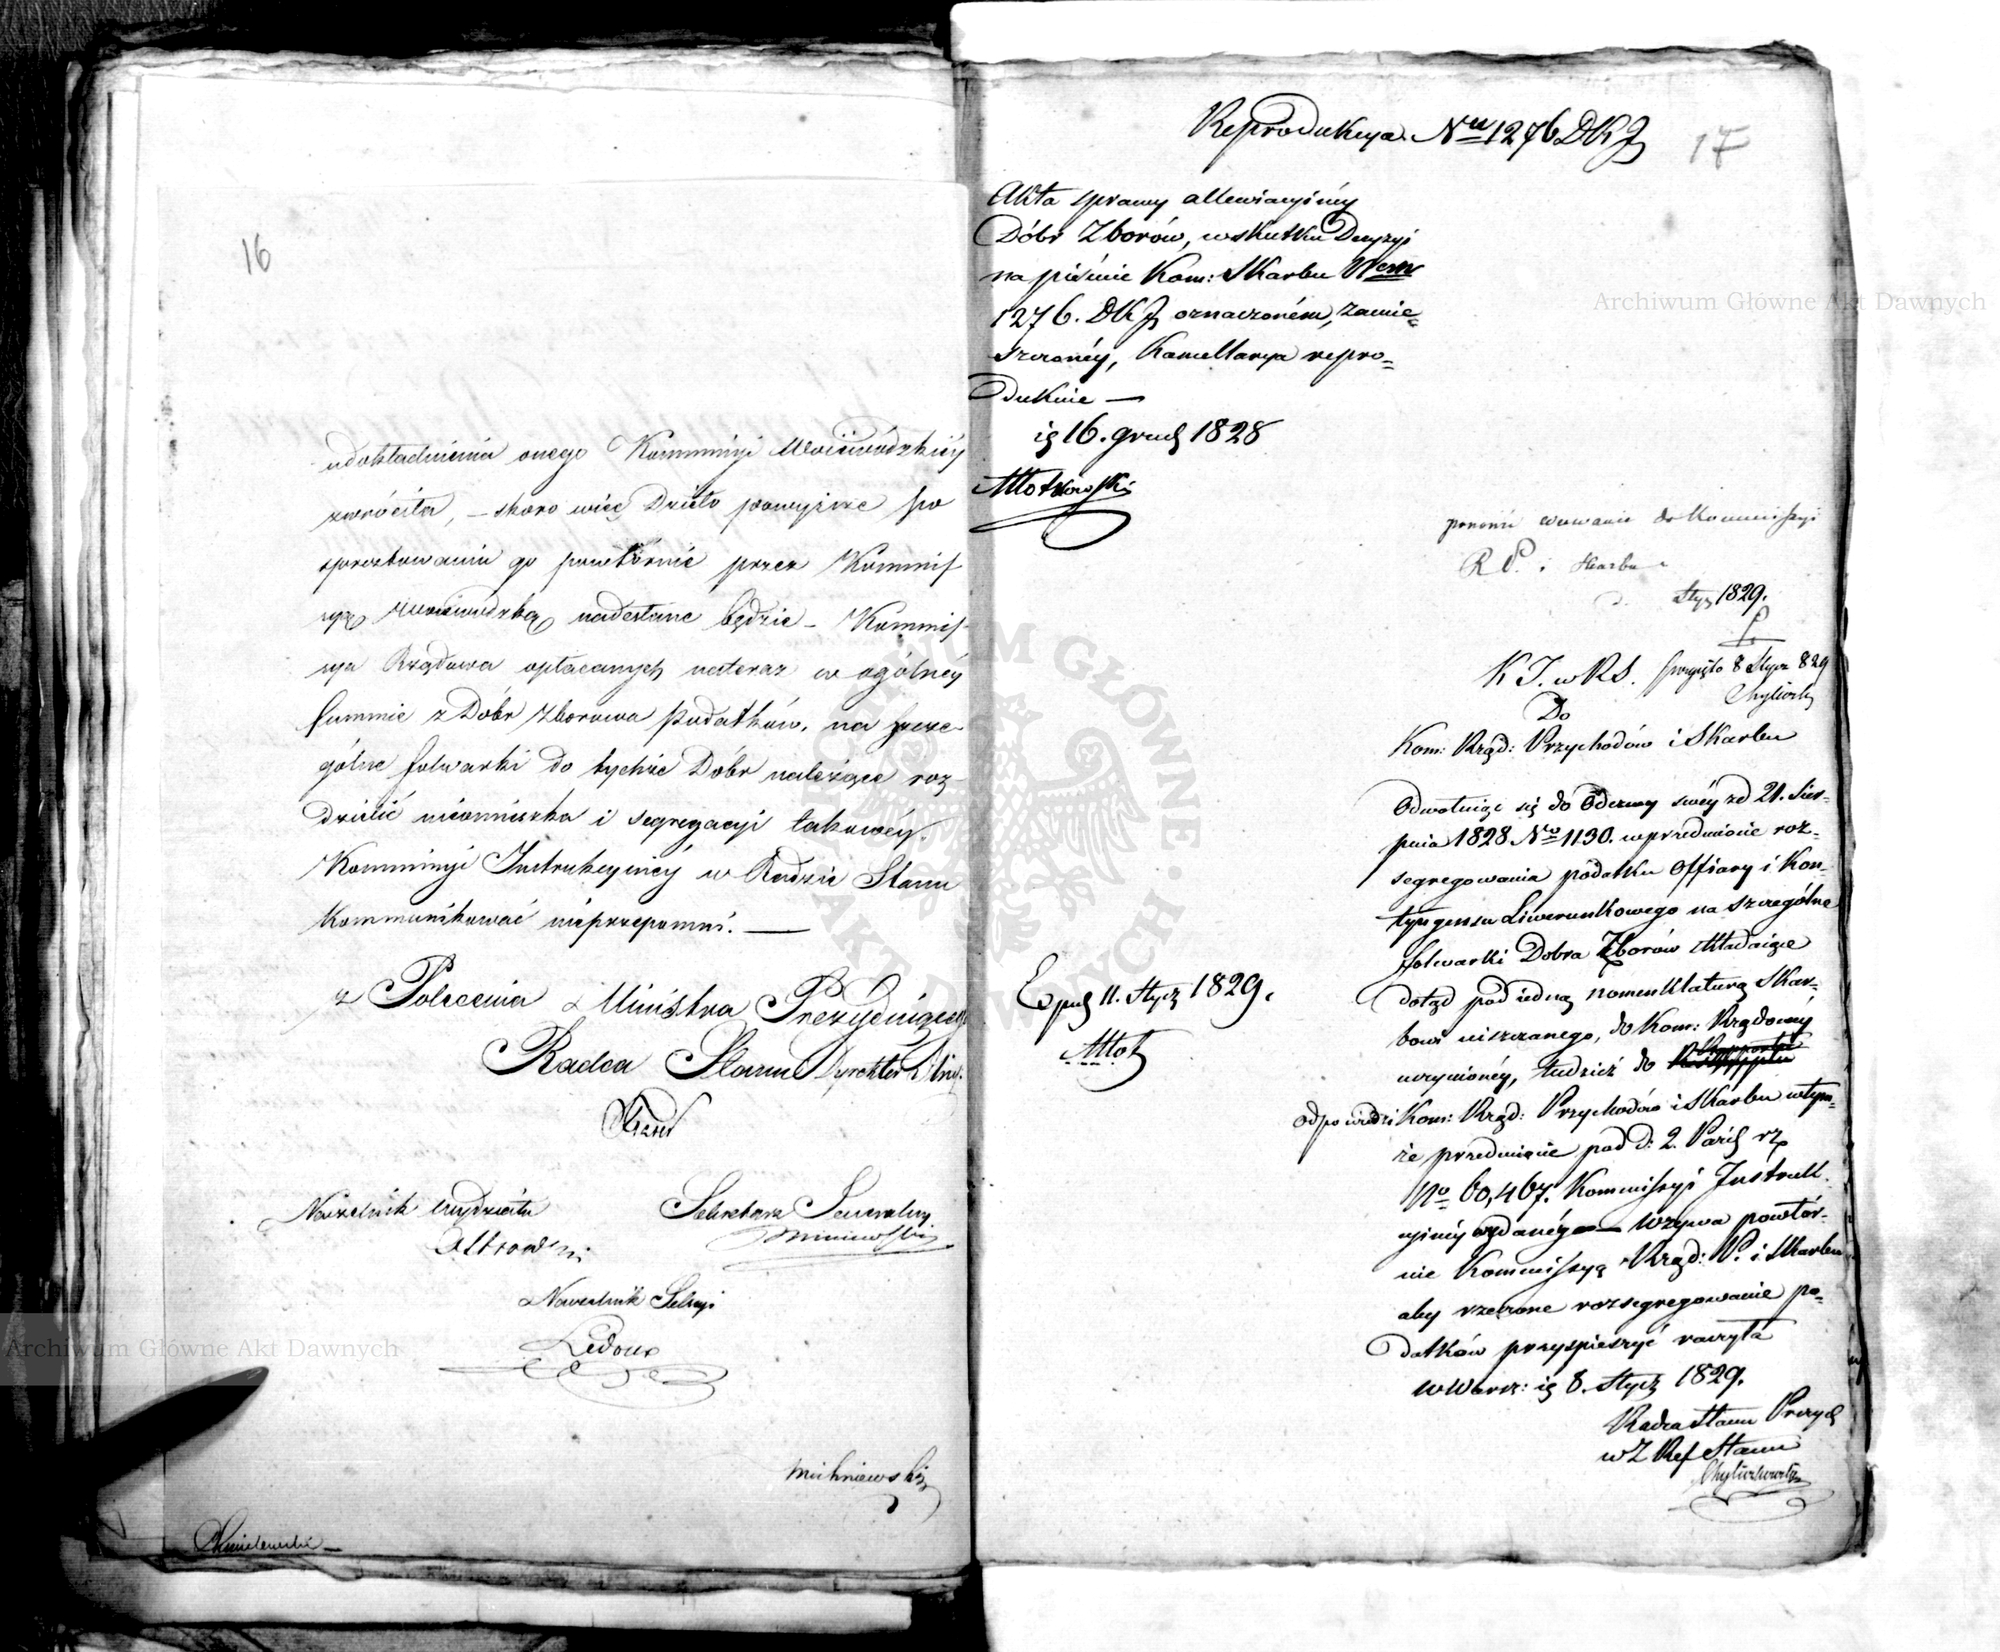 16
udokładnienia onego Kommissyi Woiewódzkiéy
zwróciła, – skoro więc Dzieło powyższe po
sprostowaniu go powtórnie przez Kommis
syą Woiewódzką nadesłane będzie – Kommis
sya Rządowa opłacanych nateraz w ogólnéy
summie z Dóbr Zborowa podatków, na szcze-
gólne folwarki do tychże Dóbr należące roz-
dzielić nieomieszka i segregacyi takowéy
Kommissyi Instrukcyinéy w Radzie Stanu
kommunikować nieprzepomni. —
z Polecenia Ministra Prezyduiącego
Radca Stanu Dyrektor
Naczelnik Wydziału
Sekretarz Jeneralny
Naczelnik Sekcyi
Ledoux
Michniewski
17
Reprodukcya Nru 1276 DKJ
Akta sprawy allewiacyinéy
Dóbr Zborów, wskutku Decyzyi
na piśmie Kom: Skarbu Nrem
1276. DKJ oznaczoném, zamie=
szczonéy, Kancellarya repro=
dukuie —
16. grud 1828
ponowić wezwanie do Kommissyi
R P. i Skarbu
Stycz 1829.
K J. w RS. przyięto 8 Stycz 829
Do
Kom: Rząd: Przychodów i Skarbu
Odwołuiąc się do Odezwy swéy zd 21. Sier-
pnia 1828 No 1130. wprzedmiocie roz=
segregowania podatku Offiary i Kon=
tyngensu Liwerunkowego na szczególne
folwarki Dobra Zborów składaiące
dotąd pod iedną nomenklaturą Skar=
bowi uiszczanego, do Kom: Rządowéy
uczynionéy, tudzież do
odpowiedzi Kom: Rząd: Przychodów i Skarbu wtym=
że przedmiocie pod d: 2. Paźd rz
No 60,467. Kommissyi Instruk
cyinéy wydanéy — wzywa powtór-
nie Kommissyą Rząd: P. i Skarbu
aby rzeczone rozsegregowanie po=
datków przyspieszyć raczyła
w Warsz: 8. Stycz 1829.
Radca Stanu Prezyd
w Z Ref Stanu
Exp 11. Stycz 1829.
Archiwum Główne Akt Dawnych
Archiwum Główne Akt Dawnych
ARCHIWUM GŁÓWNE AKT DAWNYCH